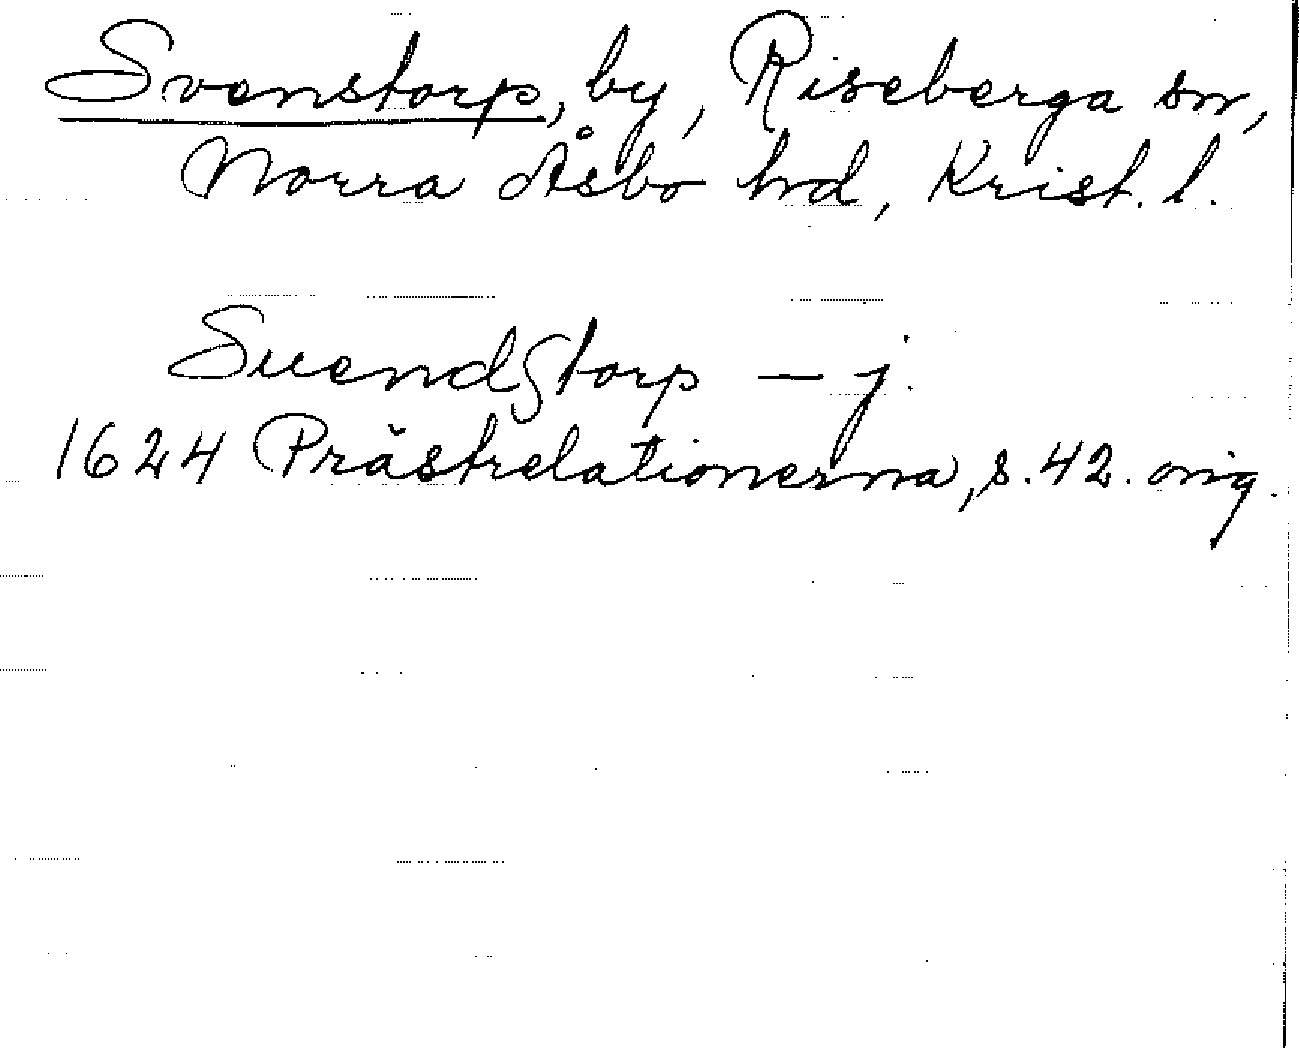 Svenstorp, by, Riseberga sn,
Norra Åsbo hd, Krist. l.
Suendstorp — j.
1624 Prästrelationerna, s. 42. orig.